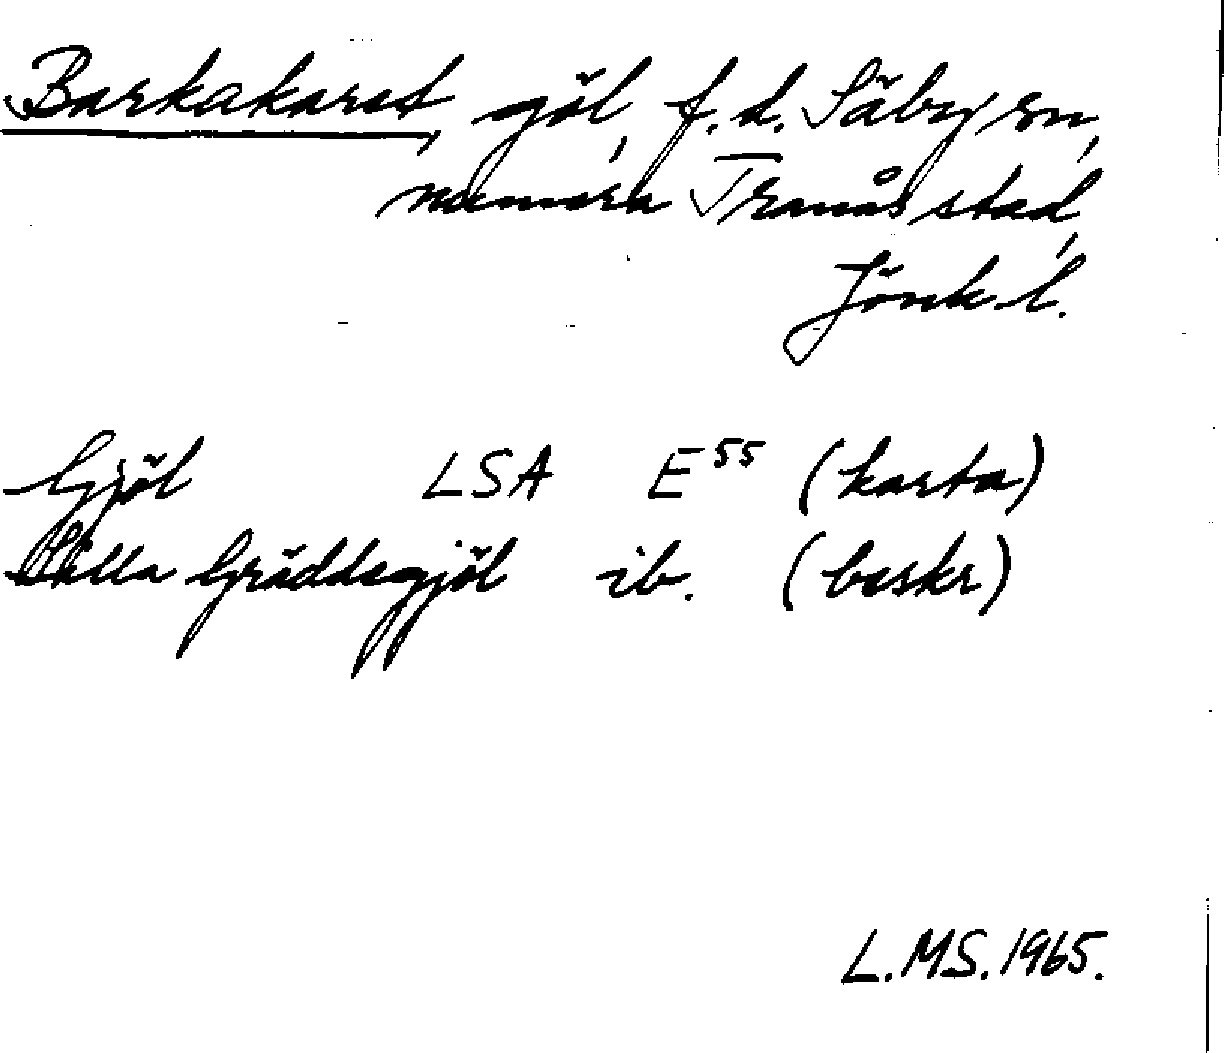 Barkakaret, göl, f.d. Säby sn,
numera Tranås stad,
Jönk l.
Gjöl LSA E55 (karta)
Lilla Gräddegjöl ib. (beskr)
L.MS.1965.